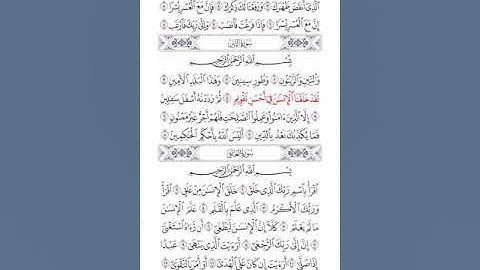 الَّذِي أَنقَضَ ظَهْرَكَ ۝ وَرَفَعْنَا لَكَ ذِكْرَكَ ۝ فَإِنَّ مَعَ الْعُسْرِ يُسْرًا ۝
إِنَّ مَعَ الْعُسْرِ يُسْرًا ۝ فَإِذَا فَرَغْتَ فَانصَبْ ۝ وَإِلَىٰ رَبِّكَ فَارْغَب ۝
سُورَةُ التِّينِ
بِسْمِ اللَّهِ الرَّحْمَٰنِ الرَّحِيمِ
وَالتِّينِ وَالزَّيْتُونِ ۝ وَطُورِ سِينِينَ ۝ وَهَٰذَا الْبَلَدِ الْأَمِينِ ۝
لَقَدْ خَلَقْنَا الْإِنسَٰنَ فِي أَحْسَنِ تَقْوِيمٍ ۝ ثُمَّ رَدَدْنَٰهُ أَسْفَلَ سَٰفِلِينَ ۝
إِلَّا الَّذِينَ ءَامَنُوا وَعَمِلُوا الصَّٰلِحَٰتِ فَلَهُمْ أَجْرٌ غَيْرُ مَمْنُونٍ ۝
فَمَا يُكَذِّبُكَ بَعْدُ بِالدِّينِ ۝ أَلَيْسَ اللَّهُ بِأَحْكَمِ الْحَٰكِمِينَ ۝
سُورَةُ الْعَلَقِ
بِسْمِ اللَّهِ الرَّحْمَٰنِ الرَّحِيمِ
اقْرَأْ بِاسْمِ رَبِّكَ الَّذِي خَلَقَ ۝ خَلَقَ الْإِنسَٰنَ مِنْ عَلَقٍ ۝ اقْرَأْ
وَرَبُّكَ الْأَكْرَمُ ۝ الَّذِي عَلَّمَ بِالْقَلَمِ ۝ عَلَّمَ الْإِنسَٰنَ
مَا لَمْ يَعْلَمْ ۝ كَلَّا إِنَّ الْإِنسَٰنَ لَيَطْغَىٰ ۝ أَن رَّءَاهُ اسْتَغْنَىٰ ۝
إِنَّ إِلَىٰ رَبِّكَ الرُّجْعَىٰ ۝ أَرَءَيْتَ الَّذِي يَنْهَىٰ ۝ عَبْدًا
إِذَا صَلَّىٰ ۝ أَرَءَيْتَ إِن كَانَ عَلَى الْهُدَىٰ ۝ أَوْ أَمَرَ بِالتَّقْوَىٰ ۝